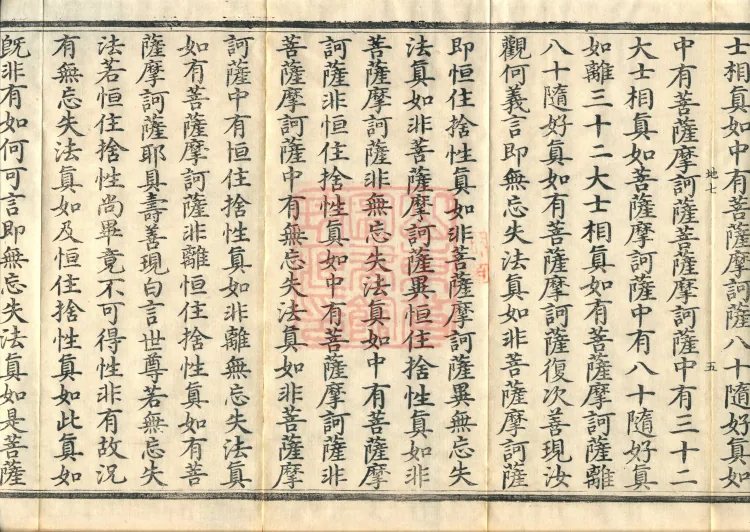 士相眞如中有菩薩摩訶薩八十隨好眞如
地七 五
中有菩薩摩訶薩菩薩摩訶薩中有三十二
大士相眞如菩薩摩訶薩中有八十隨好眞
如離三十二大士相眞如有菩薩摩訶薩離
八十隨好眞如有菩薩摩訶薩復次善現汝
觀何義言即無忘失法眞如非菩薩摩訶薩
即恒住捨性眞如非菩薩摩訶薩異無忘失
法眞如非菩薩摩訶薩異恒住捨性眞如非
菩薩摩訶薩非無忘失法眞如中有菩薩摩
訶薩非恒住捨性眞如中有菩薩摩訶薩非
菩薩摩訶薩中有無忘失法眞如非菩薩摩
訶薩中有恒住捨性眞如非離無忘失法眞
如有菩薩摩訶薩非離恒住捨性眞如有菩
薩摩訶薩耶具壽善現白言世尊若無忘失
法若恒住捨性尚畢竟不可得性非有故況
有無忘失法眞如及恒住捨性眞如此眞如
旣非有如何可言即無忘失法眞如是菩薩